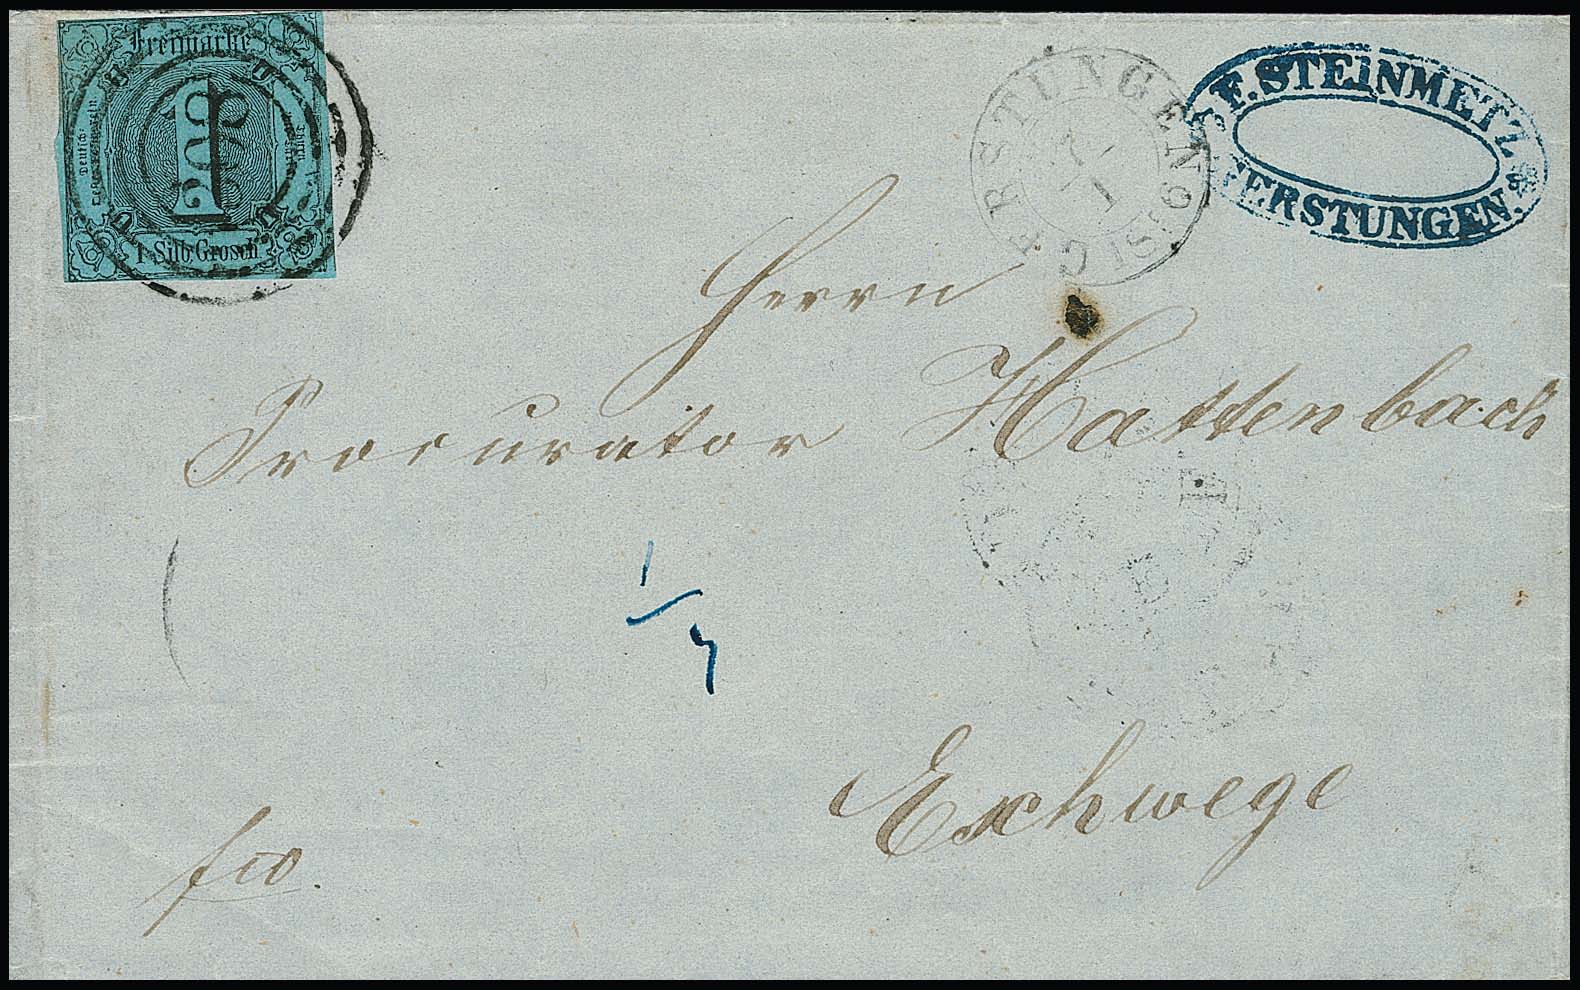 Freimarke
1
1 Silb. Grosch.
GERSTUNGEN 9. SI
7
1
F. STEINMETZ
GERSTUNGEN.
Herrn
Procurator Hattenbach
1/7
Eschwege
fco.